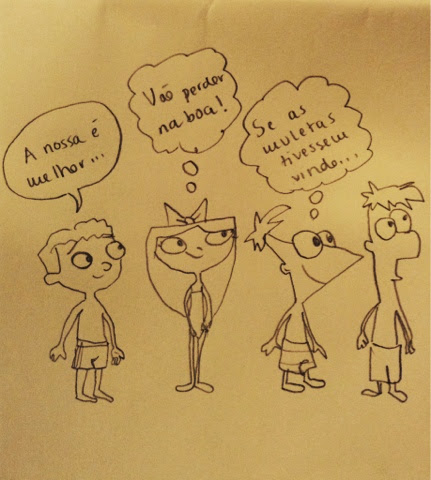 A nossa é
melhor...
Vão perder
na boa!
Se as
muletas
tivessem
vindo...